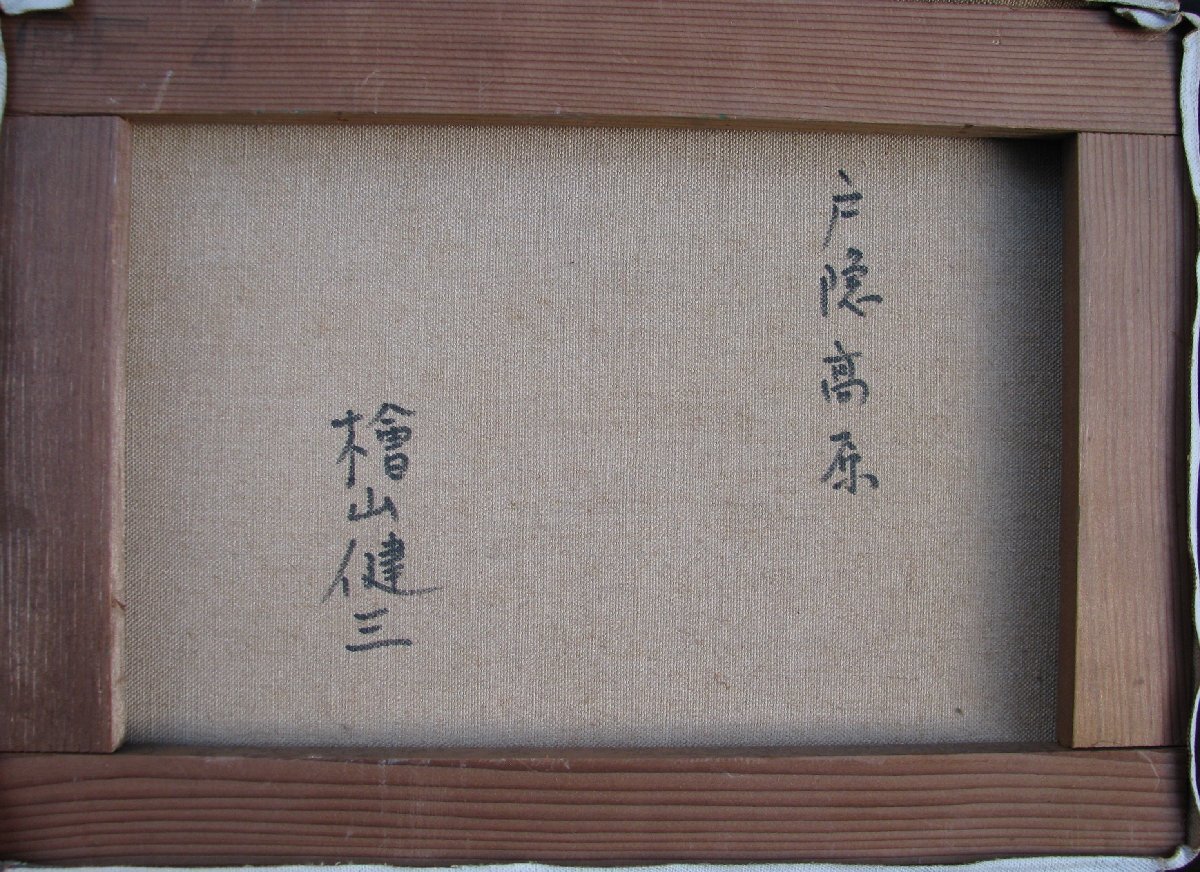 戸隠高原
檜山健三